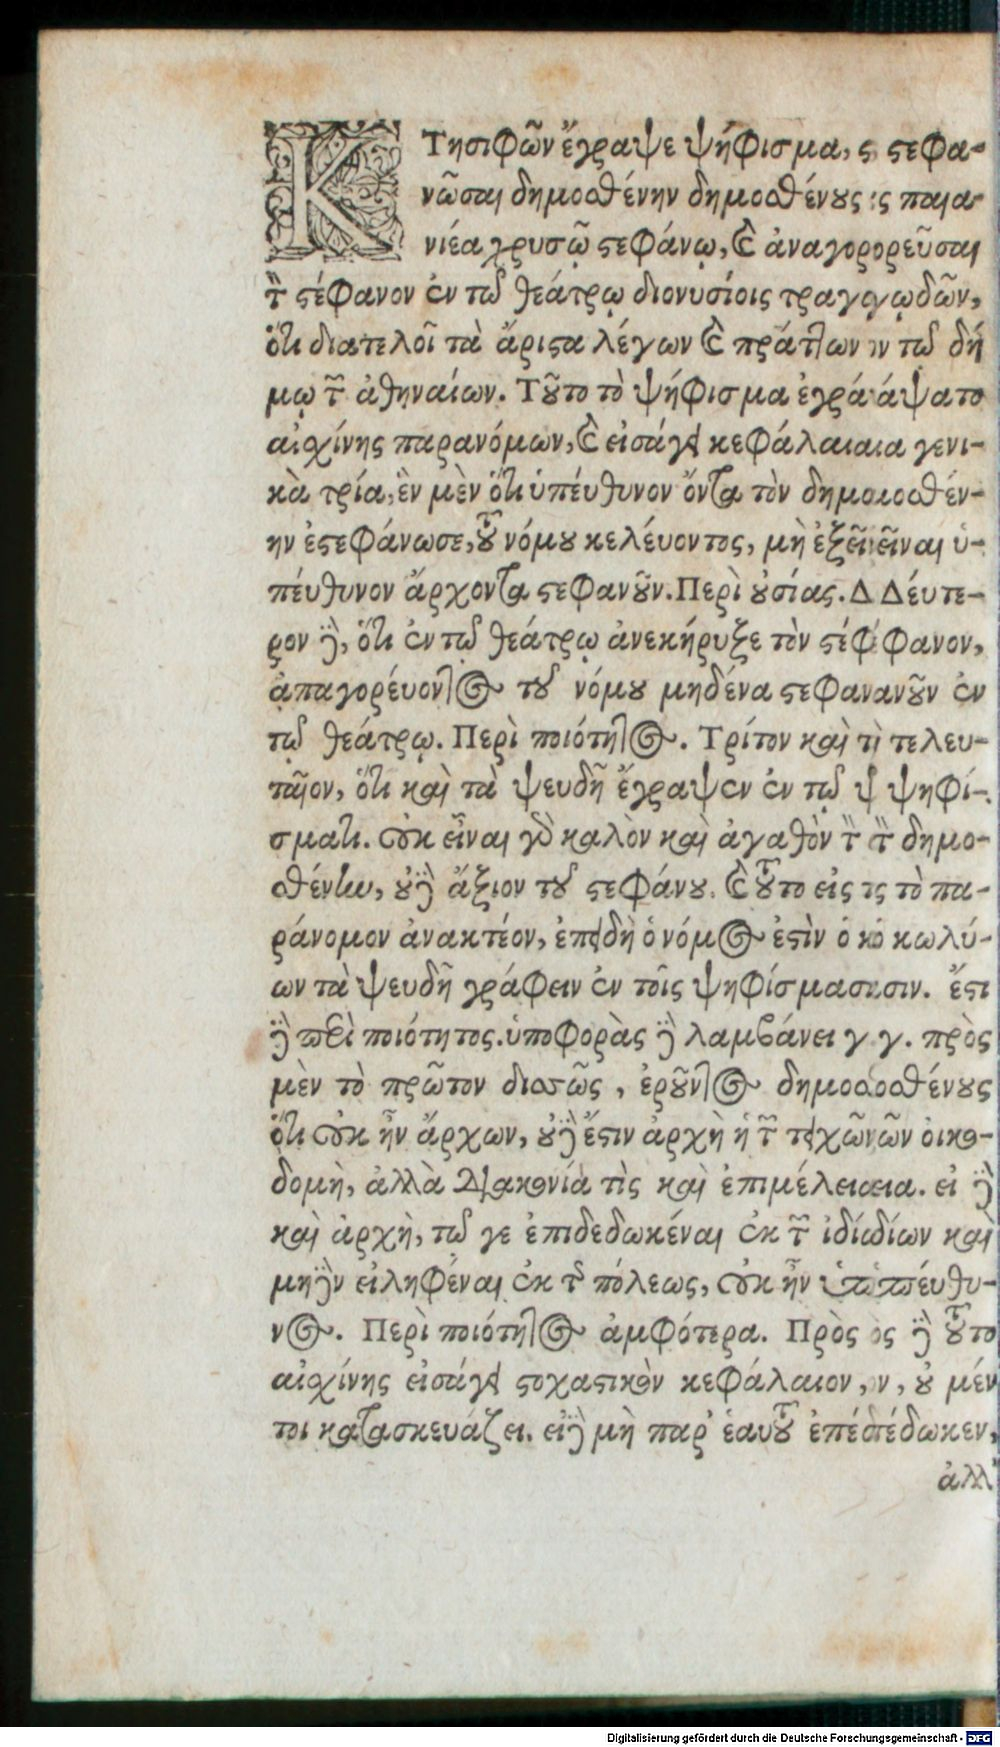 ΚΤησιφῶν ἔγραψε ψήφισμα, ς ϛεφα-
νῶσαι δημοσθένην δημοσθένους ς παια
νιέα χρυσῷ ϛεφάνῳ, καὶ ἀναγορορεῦσαι
τὸν ϛέφανον ἐν τῷ θεάτρῳ διονυσίοις τραγῳγῳδῶν,
ὅτι διατελοῖ τὰ ἄριϛα λέγων καὶ πράττων ν τῷ δή
μῳ τῶν ἀθηναίων. Τοῦτο τὸ ψήφισμα ἐγράάψατο
αἰσχίνης παρανόμων, καὶ εἰσάγει κεφάλαιαια γενι-
κὰ τρία, ἓν μὲν ὅτι ὑπέυθυνον ὄντα τὸν δημοσοσθέν-
ην ἐϛεφάνωσε, τοῦ νόμου κελέυοντος, μὴ ἐξεῖεῖναι ὑ-
πέυθυνον ἄρχοντα ϛεφανοῦν. Περὶ οὐσίας. Δ Δέυτε-
ρον δὲ, ὅτι ἐν τῷ θεάτρῳ ἀνεκήρυξε τὸν ϛέφφανον,
ἀπαγορέυοντος τοῦ νόμου μηδένα ϛεφανανοῦν ἐν
τῷ θεάτρῳ. Περὶ ποιότητος. Τρίτον καὶ τὶ τελευ-
ταῖον, ὅτι καὶ τὰ ψευδῆ ἔγραψεν ἐν τῷ ψ ψηφί-
σματι. οὐκ εἶναι γὰρ καλὸν καὶ ἀγαθὸν τὸν τὸν δημο-
σθένην, οὐδὲ ἄξιον τοῦ ϛεφάνου. καὶ τοῦτο εἰς ις τὸ πα-
ράνομον ἀνακτέον, ἐπειδὴ ὁ νόμος ἐϛὶν ὁ κὁ κωλύ-
ων τὰ ψευδῆ γράφειν ἐν τοῖς ψηφίσμασισιν. ἔϛι
δὲ περὶ ποιότητος. ὑποφορὰς δὲ λαμβάνει γ γ. πρὸς
μὲν τὸ πρῶτον δισσῶς, ἐροῦντος δημοσοσθένους
ὅτι οὐκ ἦν ἄρχων, οὐδὲ ἔϛιν ἀρχὴ ἡ τῶν τειχῶνῶν οἰκο-
δομὴ, ἀλλὰ διακονία τὶς καὶ ἐπιμέλειαεια. εἰ δὲ
καὶ ἀρχὴ, τῷ γε ἐπιδεδωκέναι ἐκ τῶν ἰδίωδίων καὶ
μηδὲν εἰληφέναι ἐκ τῆς πόλεως, οὐκ ἦν ὑπὑπέυθυ-
νος. Περὶ ποιότητος ἀμφότερα. Πρὸς ος δὲ τοῦτο
αἰσχίνης εἰσάγει ϛοχαϛικὸν κεφάλαιον, ν, οὐ μέν
τοι κατασκευάζει. εἰ δὲ μὴ παρ᾽ ἑαυτοῦ ἐπέδπέδωκεν,
ἀλλ᾽
Digitalisierung gefördert durch die Deutsche Forschungsgemeinschaft - DFG